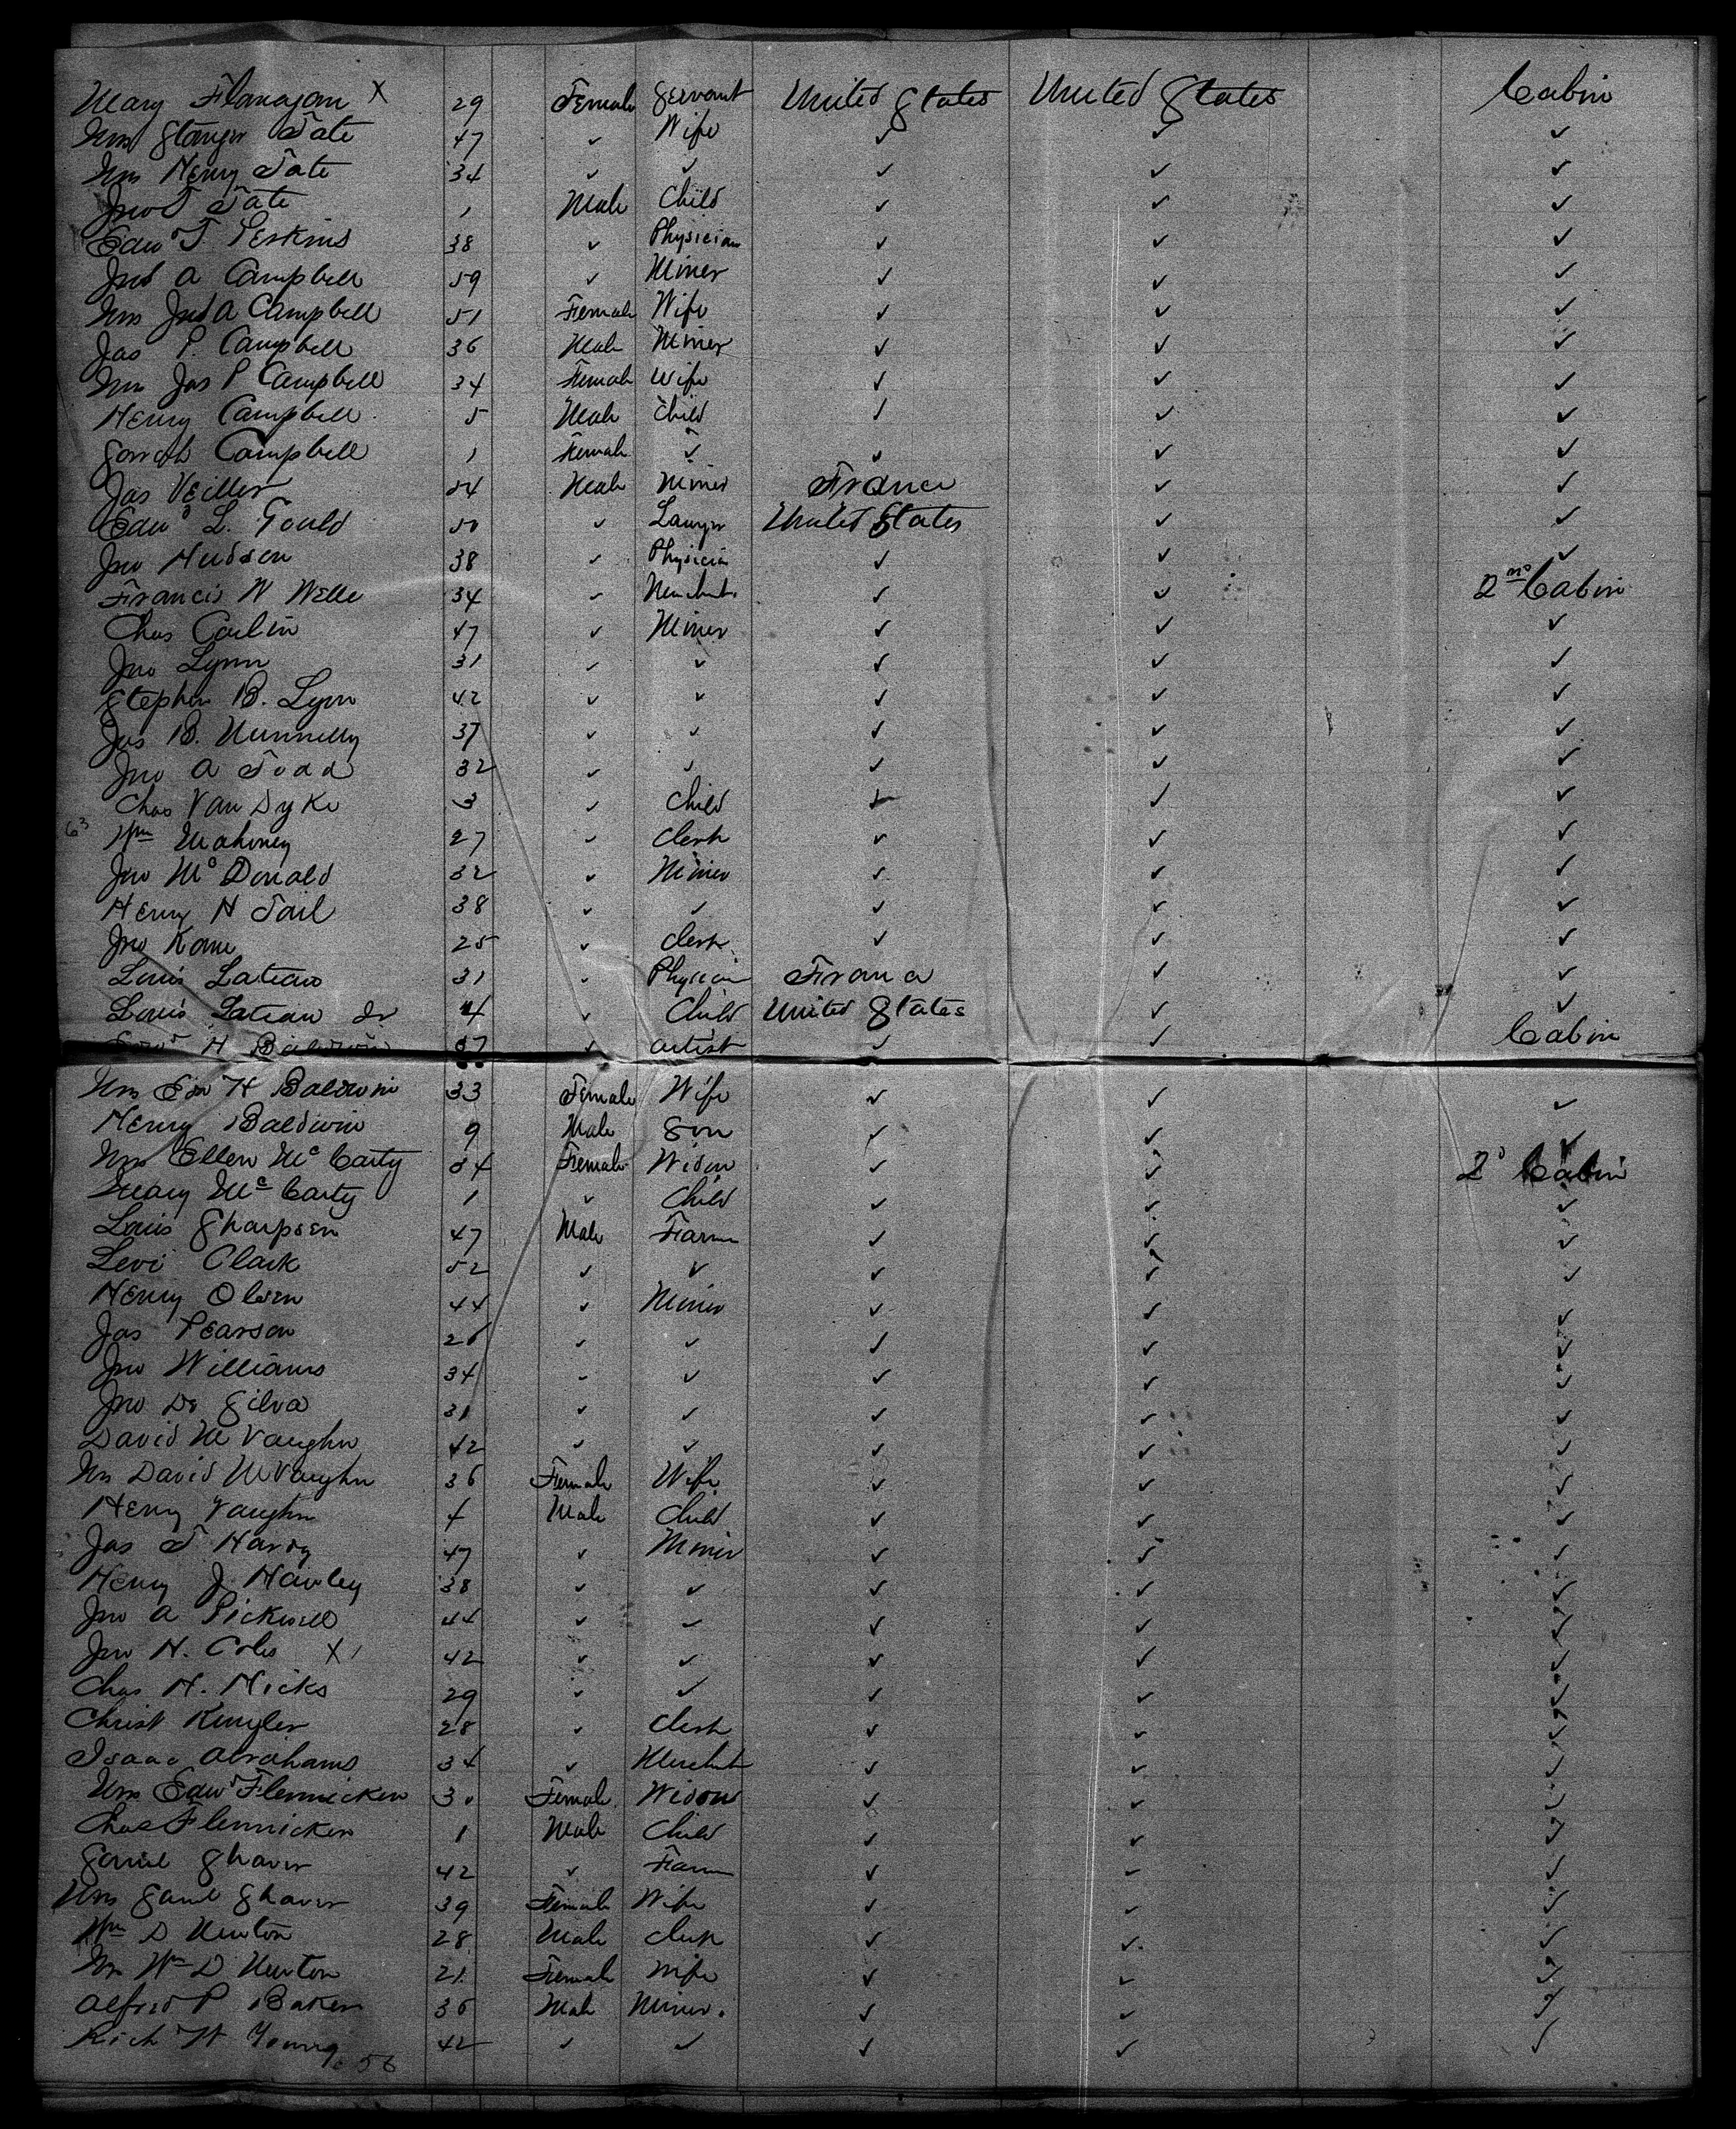 Mary Flanagan X 29 Female Servant United States United States Cabin
Mrs Tate 47 ✓ Wife ✓ ✓ ✓
Mrs Henry Tate 34 ✓ ✓ ✓ ✓ ✓
Jno T Tate 1 Male Child ✓ ✓ ✓
Edwd T. Perkins 38 ✓ Physician ✓ ✓ ✓
Jno A Campbell 59 ✓ Miner ✓ ✓ ✓
Mrs Jno A Campbell 51 Female Wife ✓ ✓ ✓
Jas P. Campbell 36 Male Miner ✓ ✓ ✓
Mrs Jas P Campbell 34 Female Wife ✓ ✓ ✓
Henry Campbell 5 Male Child ✓ ✓ ✓
Sarah Campbell 1 Female ✓ ✓ ✓ ✓
Jas Veiller 54 Male Miner France ✓ ✓
Edwd L. Gould 50 ✓ Lawyer United States ✓ ✓
Jno Hudson 38 ✓ Physician ✓ ✓ ✓
Francis W Welle 34 ✓ Merchant ✓ ✓ 2nd Cabin
Chas Carlin 47 ✓ Miner ✓ ✓ ✓
Jno Lynn 31 ✓ ✓ ✓ ✓ ✓
Stephen B. Lynn 42 ✓ ✓ ✓ ✓ ✓
Jas B. Nunnelly 37 ✓ ✓ ✓ ✓ ✓
Jno A Todd 32 ✓ ✓ ✓ ✓ ✓
Chas Van Dyke 3 ✓ Child ✓ ✓ ✓
63 Wm Mahoney 27 ✓ Clerk ✓ ✓ ✓
Jno McDonald 32 ✓ Miner ✓ ✓ ✓
Henry H Tail 38 ✓ ✓ ✓ ✓ ✓
Jno Kane 25 ✓ Clerk ✓ ✓ ✓
Louis Lateau 31 ✓ Physician France ✓ ✓
Louis Lateau Jr 4 ✓ Child United States ✓ ✓
Edwd H Baldwin 37 ✓ Artist ✓ ✓ Cabin
Mrs Edw H Baldwin 33 Female Wife ✓ ✓ ✓
Henry Baldwin 9 Male Son ✓ ✓ ✓
Mrs Ellen McCarty 34 Female Widow ✓ ✓ 2d Cabin
Mary McCarty 1 ✓ Child ✓ ✓ ✓
Louis Sharpsen 47 Male Farmer ✓ ✓ ✓
Levi Clark 52 ✓ ✓ ✓ ✓ ✓
Henry Olsen 44 ✓ Miner ✓ ✓ ✓
Jas Pearson 26 ✓ ✓ ✓ ✓ ✓
Jno Williams 34 ✓ ✓ ✓ ✓ ✓
Jno De Silva 31 ✓ ✓ ✓ ✓ ✓
David M Vaughn 42 ✓ ✓ ✓ ✓ ✓
Mrs David M Vaughn 36 Female Wife ✓ ✓ ✓
Henry Vaughn 4 Male Child ✓ ✓ ✓
Jas T Hardy 47 ✓ Miner ✓ ✓ ✓
Henry J. Hawley 38 ✓ ✓ ✓ ✓ ✓
Jno A Pickwell 44 ✓ ✓ ✓ ✓ ✓
Jno H. Coles X 42 ✓ ✓ ✓ ✓ ✓
Chas H. Hicks 29 ✓ ✓ ✓ ✓ ✓
Christ Kugler 28 ✓ Clerk ✓ ✓ ✓
Isaac Abrahams 34 ✓ Merchant ✓ ✓ ✓
Mrs Edwd Flennicken 30 Female Widow ✓ ✓ ✓
Chas Flennicken 1 Male Child ✓ ✓ ✓
Saml Shaver 42 ✓ Farmer ✓ ✓ ✓
Mrs Saml Shaver 39 Female Wife ✓ ✓ ✓
Wm D Newton 28 Male Clerk ✓ ✓ ✓
Mrs Wm D Newton 21 Female Wife ✓ ✓ ✓
Alfred P Baker 36 Male Miner ✓ ✓ ✓
Rich W Young 42 ✓ ✓ ✓ ✓ ✓
56